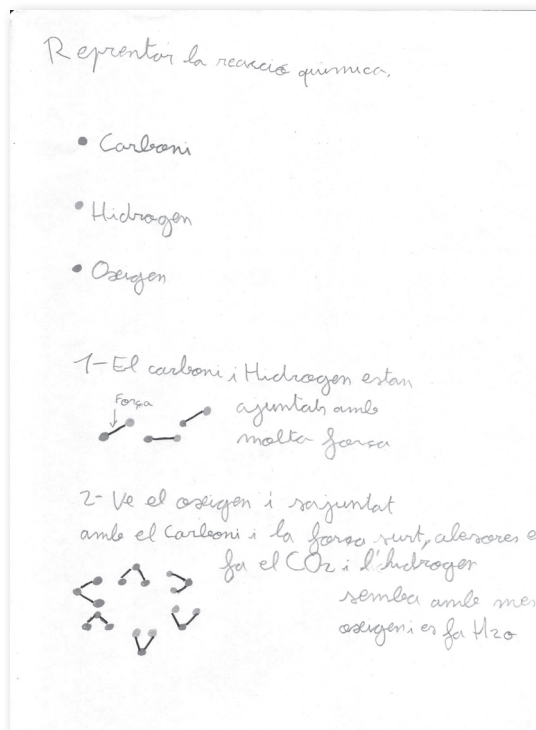 Reprentar la reacció química.
• Carboni
• Hidrogen
• Oxigen
1- El carboni i Hidrogen estan
ajuntats amb
molta força
Força
2- Ve el oxigen i s'ajuntat
amb el Carboni i la força surt, alesores e
fa el CO2 i l'hidrogen
semba amb mes
oxigen i es fa H2O